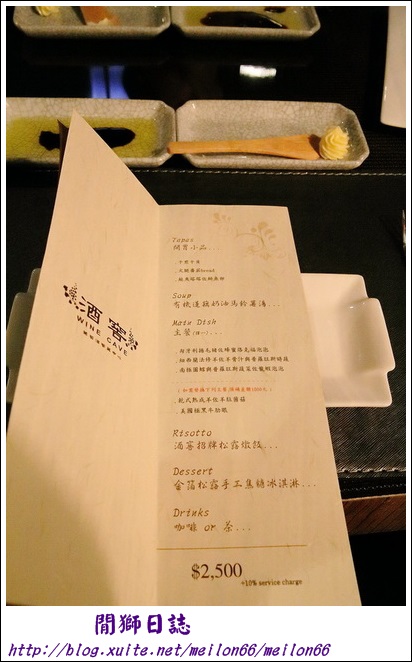 酒窖
WINE CAVE
Tapas
開胃小品...
Soup
有機蓮藕奶油馬鈴薯湯...
Main Dish
主菜(擇一)...
乾式熟成羊佐羊肚菌菇
美國極黑牛肋眼
Risotto
酒窖招牌松露燉飯...
Dessert
金箔松露手工焦糖冰淇淋...
Drinks
咖啡 or 茶...
$2,500
+10% service charge
閒獅日誌
http://blog.xuite.net/meilon66/meilon66